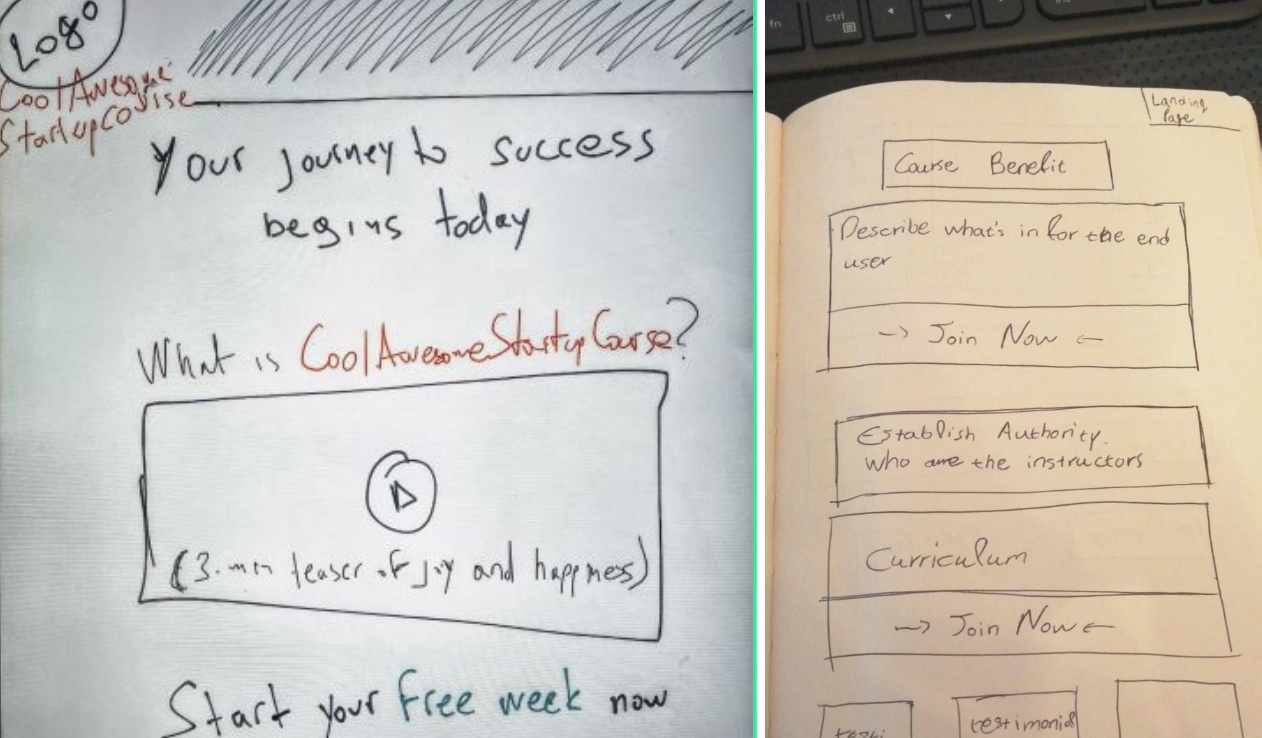 Logo
CoolAwesome
StartupCourse
Your journey to success
begins today
What is CoolAwesomeStartupCourse?
(3-min teaser of joy and happiness)
Start your free week now
fn
ctrl
Landing
Page
Course Benefit
Describe what's in for the end
user
-> Join Now <-
Establish Authority.
who are the instructors
Curriculum
-> Join Now <-
testi
testimonial